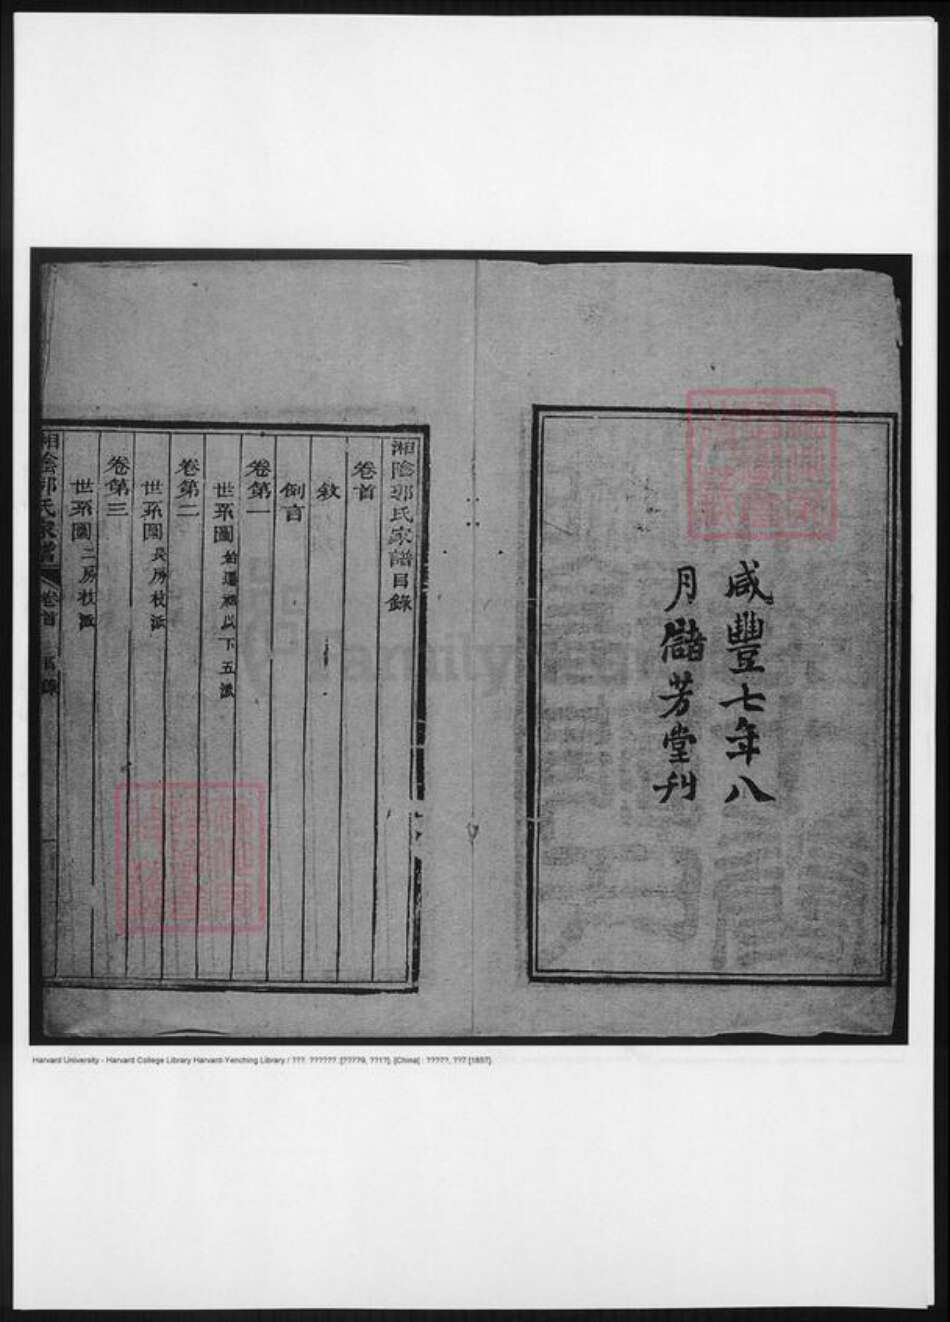 咸豐七年八
月儲芳堂刋
湘陰郭氏家譜目錄
卷首
敘
例言
卷第一
世系圖 始遷祖以下五派
卷第二
世系圖 長房枝派
卷第三
世系圖 二房枝派
湘陰郭氏家譜 卷首 目錄 一
Harvard University - Harvard College Library Harvard-Yenching Library / ???. ?????? :[????9, ??1?]. [China[ : ?????, ??7 [1857].